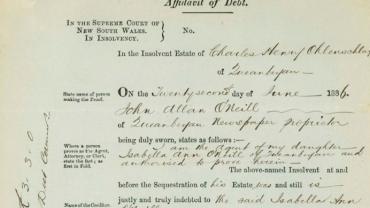 Affidavit of Debt.
IN THE SUPREME COURT OF
NEW SOUTH WALES.
IN INSOLVENCY.
No.
In the Insolvent Estate of Charles Henry Ohlenschlag
of Queanbeyan
State name of person
making the Proof.
ON the Twentysecond day of June 1886
John Allan O'Neill
of Queanbeyan Newspaper proprietor
being duly sworn, states as follows:—
Where a person
proves as the Agent,
Attorney, or Clerk,
state the fact; as
first in Fold.
I am the Agent of my daughter
Isabella Ann O'Neill of Queanbeyan and
authorised to prove herein
The above-named Insolvent at and
before the Sequestration of his Estate, was and still is
justly and truly indebted to the said Isabella Ann
Name of the Creditor
£ 3. 3. 0